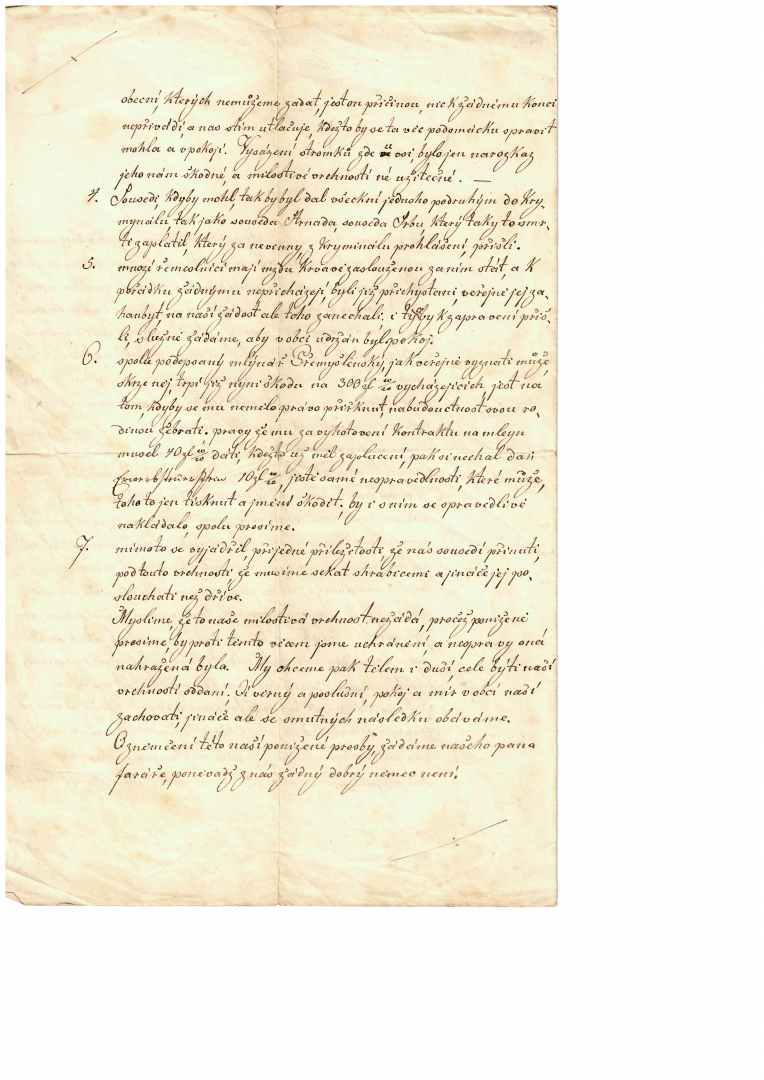 obecní, kterých nemůžeme žádat, jest on příčinou, nic k žádnému konci
nepřivádí, a nas stim utlačuje, kdežto by se ta věc podomácku spravit
mohla a v pokoji. Vysázení stromků zde ve vsi, bylo jen na rozkaz
jeho nám škodné, a milostivé vrchnosti né užitečné. —
4. Sousedi, kdyby mohl, tak by byl dal všeckni jednoho po druhým do Kry-
mynálu tak jako souseda Arnada, souseda Srbu, který taky to smr-
tí zaplatil, který za nevinny z Kryminálu prohlášení, přišli.
5. mnozí řemeslníci mají mzdu krvavě zaslouženou za ním stát, a k
pořádku žádnýmu nepřicházejí, byli již přichystani, veřejně jej za-
hanbyt, na naší žádost ale toho zanechali. i tyby k zapravení přiš-
li, slušně žádáme, aby v obci udržán byl pokoj.
6. spolu podepsaný mlýnář Přemyšlenský, jak veřejně vyznati může,
skrze něj, trpí již nyni škodu na 300 zl vycházejících, jest na
tom, kdyby se mu nemělo právo přiřknut, na budouctnost svou ro-
dinou žebrati. pravý že mu za vyhotovení Kontraktu na mleyn
musel 40 zl dáti, kdežto už měl zaplacení, pak si nechal dáti
10 zl, ješte samé nespravedlnosti, které může,
toho to jen tisknut a jmění škodit. by i s ním se spravedlivě
nakládalo, spolu prosíme.
7. mimoto se vyjádřil, při jedné přiležtosti, že nás sousedí přinutí,
pod touto vrchností, že musíme sekat s hrabicemi a jináče jej po-
slouchati než dříve.
Myslíme, že to naše milostivá vrchnost nežádá, pročež poniženě
prosíme, by proti těmto věcem jsme uchráněni, a nespravy oná
nahražená byla. My chceme pak tělem i duší, cele býti naší
vrchnosti oddaní. Ji verný a poslušní, pokoj a mír v obci naší
zachovati, jináče ale se smutných následků obáváme.
O zněmčení této naší ponižené prosby, žádáme našeho pana
faráře, poněvadž z nás žádný dobrý němec není!